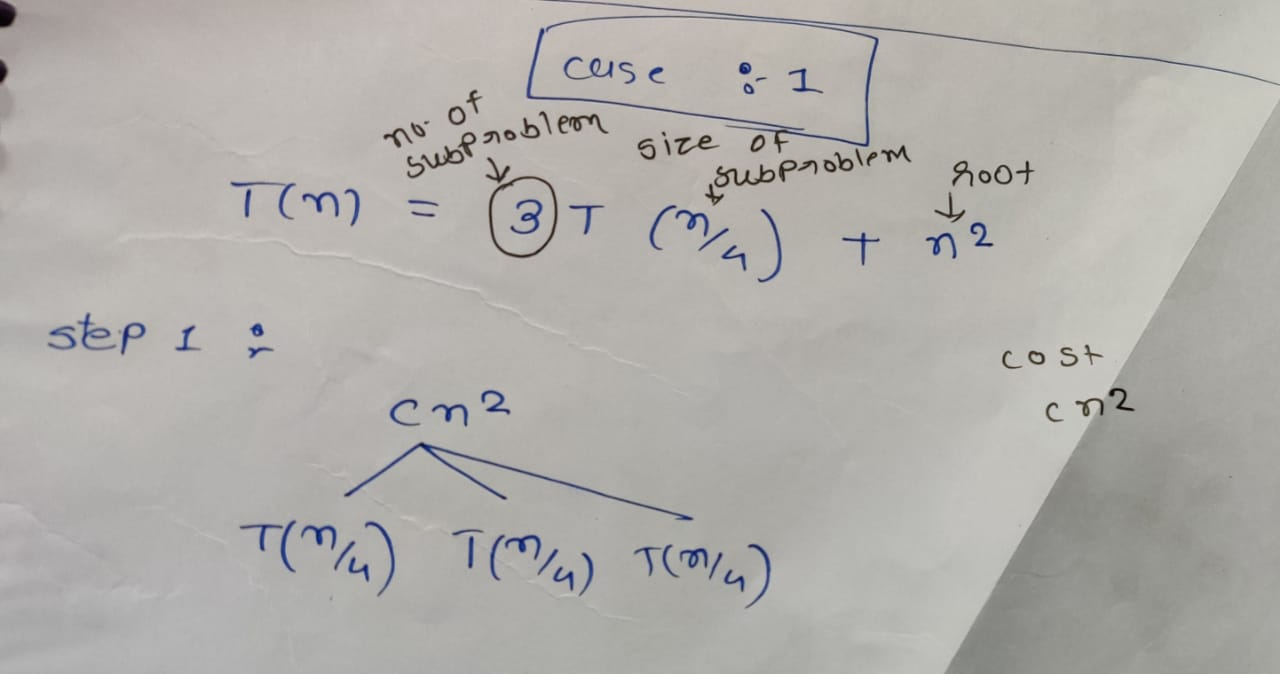 case :- 1
no. of
subproblem
size of
subproblem
root
T(n) = 3 T (n/4) + n²
step 1 :-
cost
cn²
cn²
T(n/4) T(n/4) T(n/4)